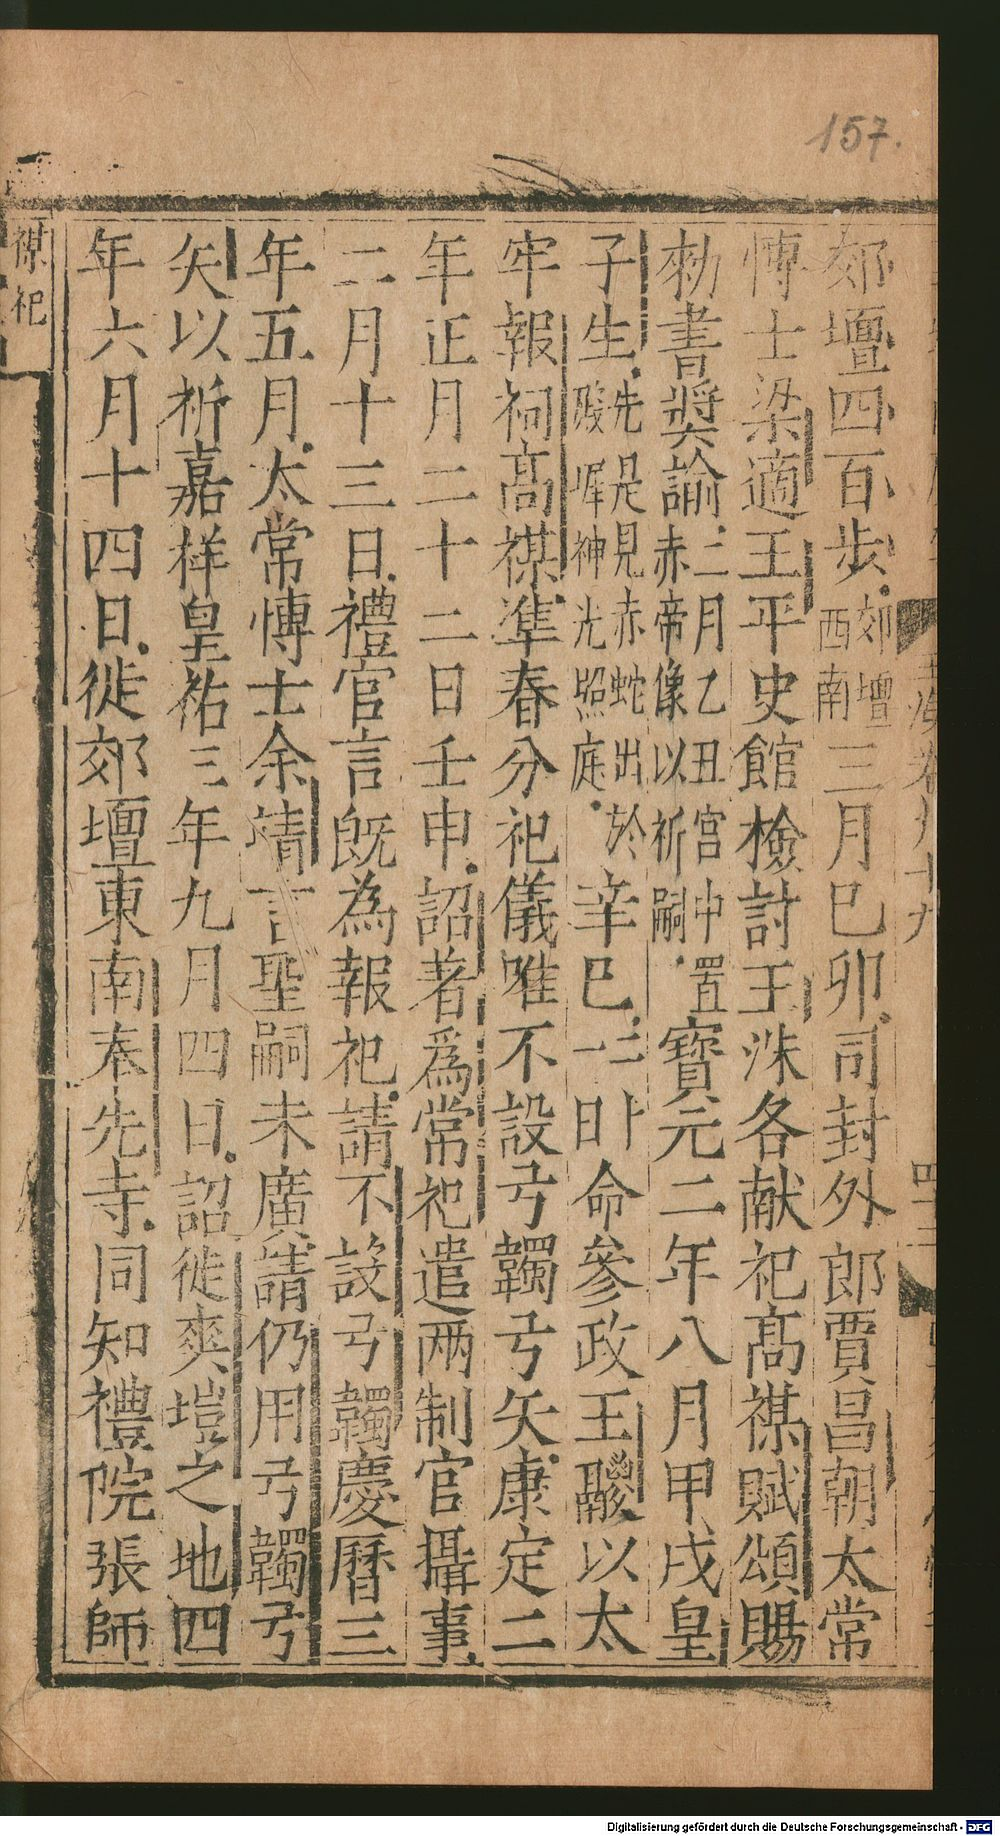 157.
郊壇四百步郊壇西南三月巳卯司封外郎賈昌朝太常
愽士梁適王平史館檢討王洙各献祀高禖賦頌賜
勑書奬諭三月乙丑宮中置赤帝像以祈嗣寶元二年八月甲戌皇
子生先是見赤蛇出於殿墀神光照庭辛巳二十一日命參政王鬷以太
牢報祠高禖準春分祀儀唯不設弓韣弓矢康定二
年正月二十二日壬申詔著爲常祀遣兩制官攝事
二月十三日禮官言旣為報祀請不設弓韣慶曆三
年五月太常愽士余靖言聖嗣未廣請仍用弓韣弓
矢以祈嘉祥皇祐三年九月四日詔徙爽塏之地四
年六月十四日徙郊壇東南奉先寺同知禮院張師
禖祀
Digitalisierung gefördert durch die Deutsche Forschungsgemeinschaft - DFG